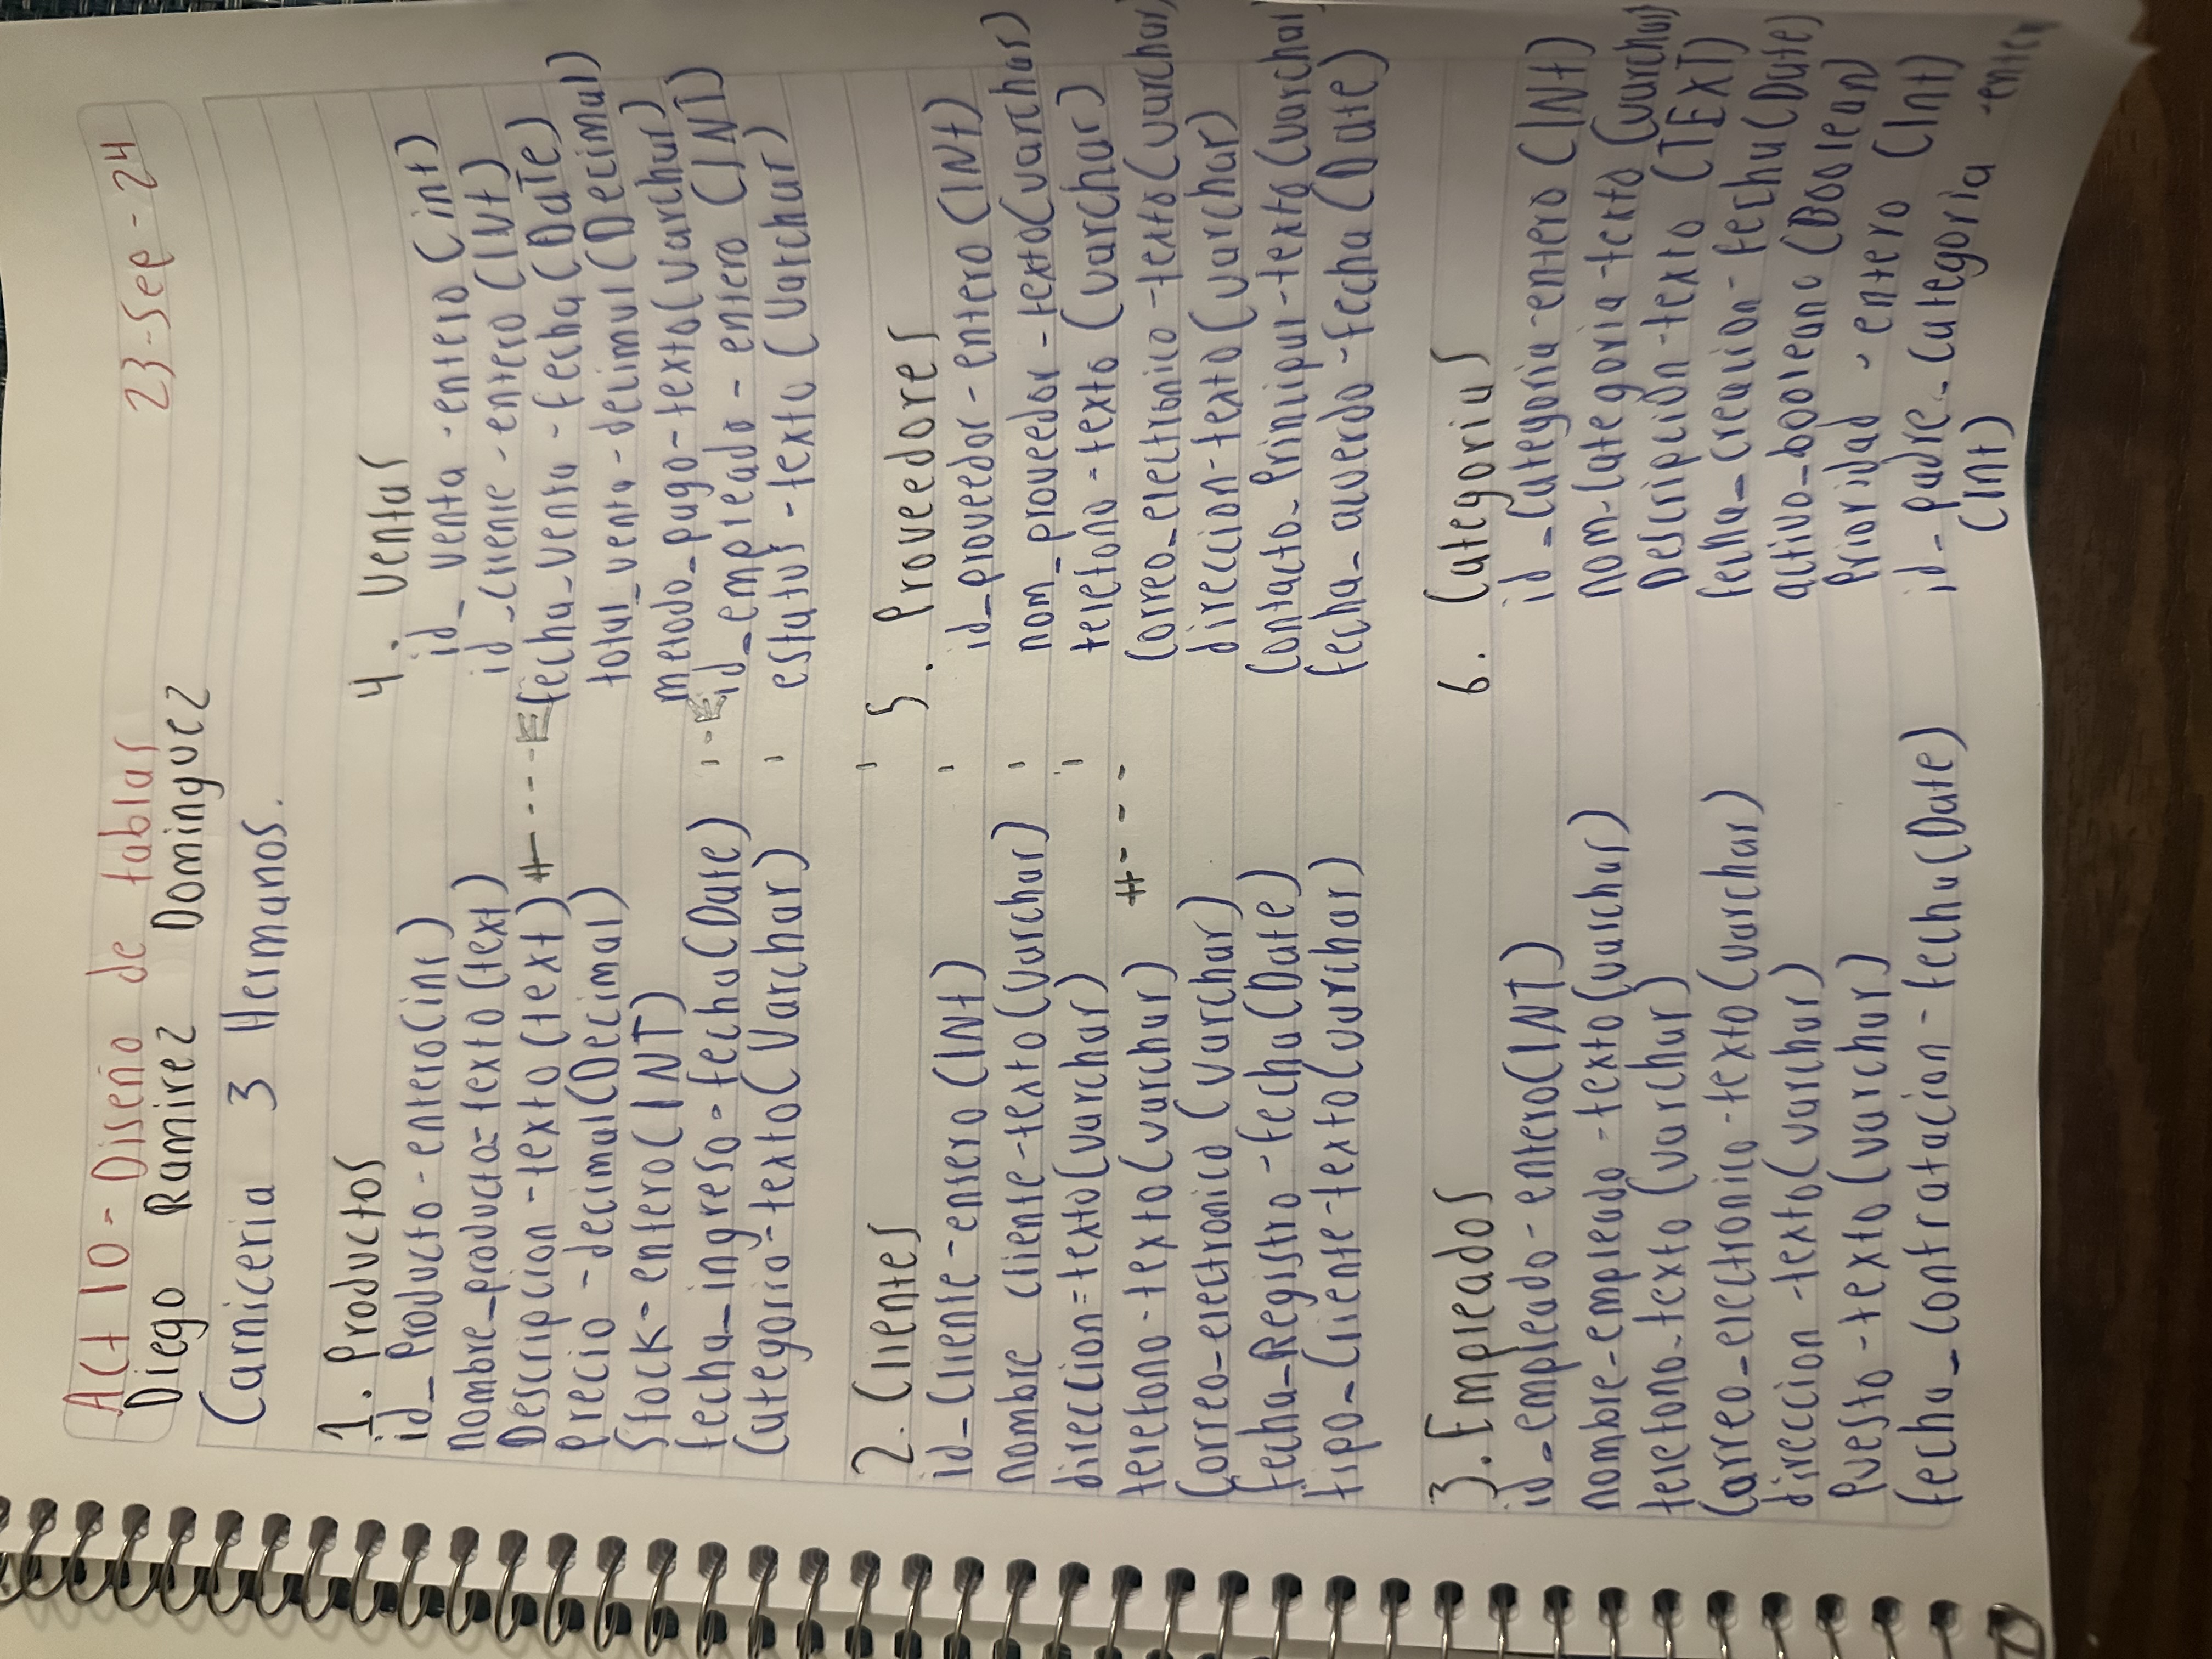 Act 10 - Diseño de tablas
23-Sep-24
Diego Ramirez Dominguez
Carniceria 3 Hermanos.
1. Productos
id_Producto - entero(int)
nombre_producto= texto (text)
Descripcion - texto (text)
Precio - decimal(Decimal)
Stock - entero(INT)
fecha_ingreso - fecha(Date)
Categoria - texto(Varchar)
2. Clientes
id_Cliente - entero (INt)
nombre cliente - texto (Varchar)
direccion = texto(varchar)
telefono - texto (varchar)
Correo_electronico (varchar)
fecha_Registro - fecha (Date)
tipo_Cliente - texto(varchar)
3. Empleados
id_empleado - entero(INT)
nombre_empleado - texto (varchar)
telefono - texto (varchar)
Correo_electronico - texto (varchar)
direccion - texto(varchar)
Puesto - texto (varchar)
fecha_contratacion - fecha(Date)
4. Ventas
id_venta - entero (int)
id_cliente - entero (INt)
fecha_venta - fecha (DaTe)
total_venta - decimal (Decimal)
metodo_pago - texto(varchar)
id_empleado - entero (INT)
estatus - texto (Varchar)
5. Proveedores
id_proveedor - entero (INt)
nom_proveedor - texto(varchar)
telefono = texto (varchar)
Correo_electronico - texto (varchar)
direccion - texto (varchar)
Contacto_Principal - texto (varchar
fecha_acuerdo - fecha (Date)
6. Categorias
id_Categoria - entero (INt)
nom-Categoria - texto (varchar)
Descripcion - texto (TEXT)
fecha_creacion - fecha (Date)
activo_booleano (Boolean)
Prioridad - entero (Int)
id_padre_Categoria - enter
(Int)